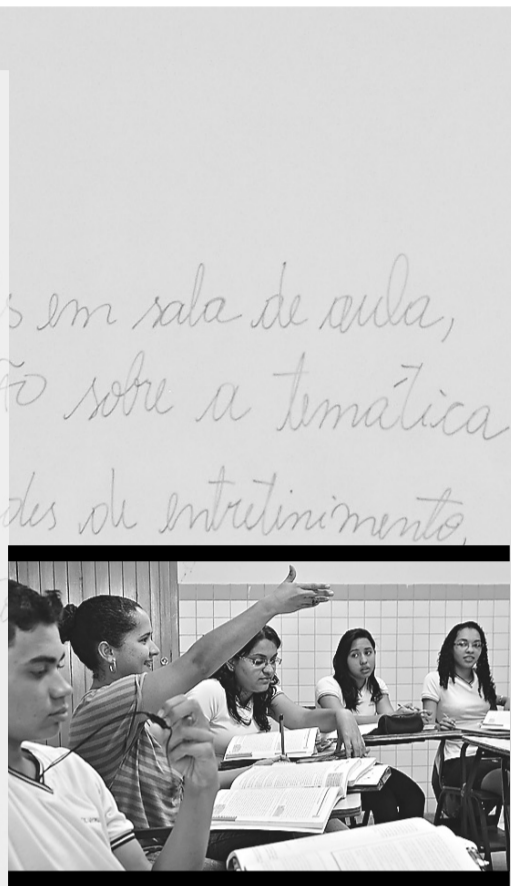 s em sala de aula,
ão sobre a temática
des de entretinimento,